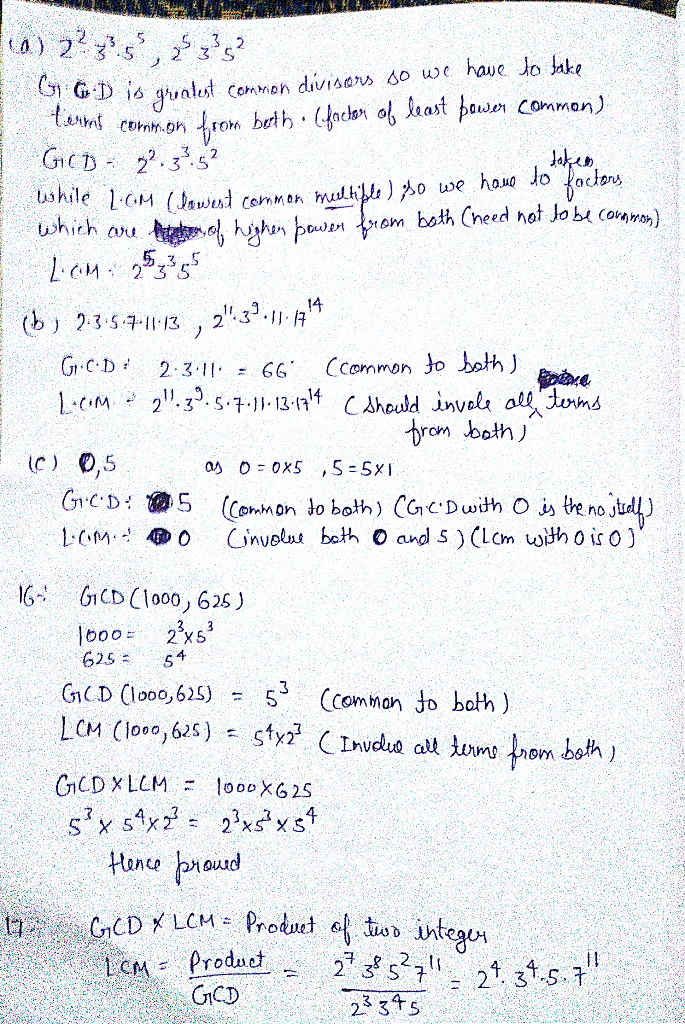 (a) 2² 3³.5⁵ , 2⁵ 3³ 5²
G.C.D is greatest common divisors so we have to take
terms common from both. (factor of least power common)
GCD = 2².3³.5²
while L.C.M (lowest common multiple) so we have to taken factors
which are of higher power from both (need not to be common)
L.C.M: 2⁵3³5⁵
(b) 2.3.5.7.11.13 , 2¹¹.3⁹.11.17¹⁴
G.C.D: 2.3.11. = 66 (common to both)
L.C.M = 2¹¹.3⁹.5.7.11.13.17¹⁴ (should invole all terms
from both)
(c) 0,5 as 0=0x5 ,5=5x1
G.C.D: 5 (Common to both) (G.C.D with 0 is the no itself)
L.C.M.: 0 (involue both 0 and 5) (Lcm with 0 is 0)
16- GCD (1000, 625)
1000= 2³x5³
625= 5⁴
GCD (1000,625) = 5³ (common to both)
LCM (1000,625) = 5⁴x2³ (Involue all terms from both)
GCD X LCM = 1000X625
5³ x 5⁴x2³ = 2³x5³x5⁴
Hence proued
17- GCD X LCM = Product of two integer
LCM = Product / GCD = 2⁷ 3⁸ 5² 7¹¹ / 2³ 3⁴ 5 = 2⁴. 3⁴.5.7¹¹